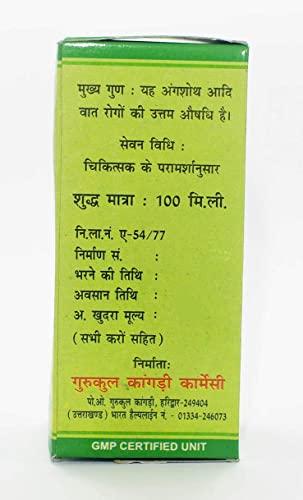 मुख्य गुण : यह अंगशोथ आदि
वात रोगों की उत्तम औषधि है।
सेवन विधि :
चिकित्सक के परामर्शानुसार
शुद्ध मात्रा : 100 मि.ली.
नि.ला.नं. ए-54/77
निर्माण सं. :
भरने की तिथि :
अवसान तिथि :
अ. खुदरा मूल्य :
(सभी करों सहित)
निर्माता:
गुरुकुल कांगड़ी फार्मेसी
पो.ओ. गुरुकुल कांगड़ी, हरिद्वार-249404
(उत्तराखण्ड) भारत हैल्पलाईन नं. - 01334-246073
GMP CERTIFIED UNIT